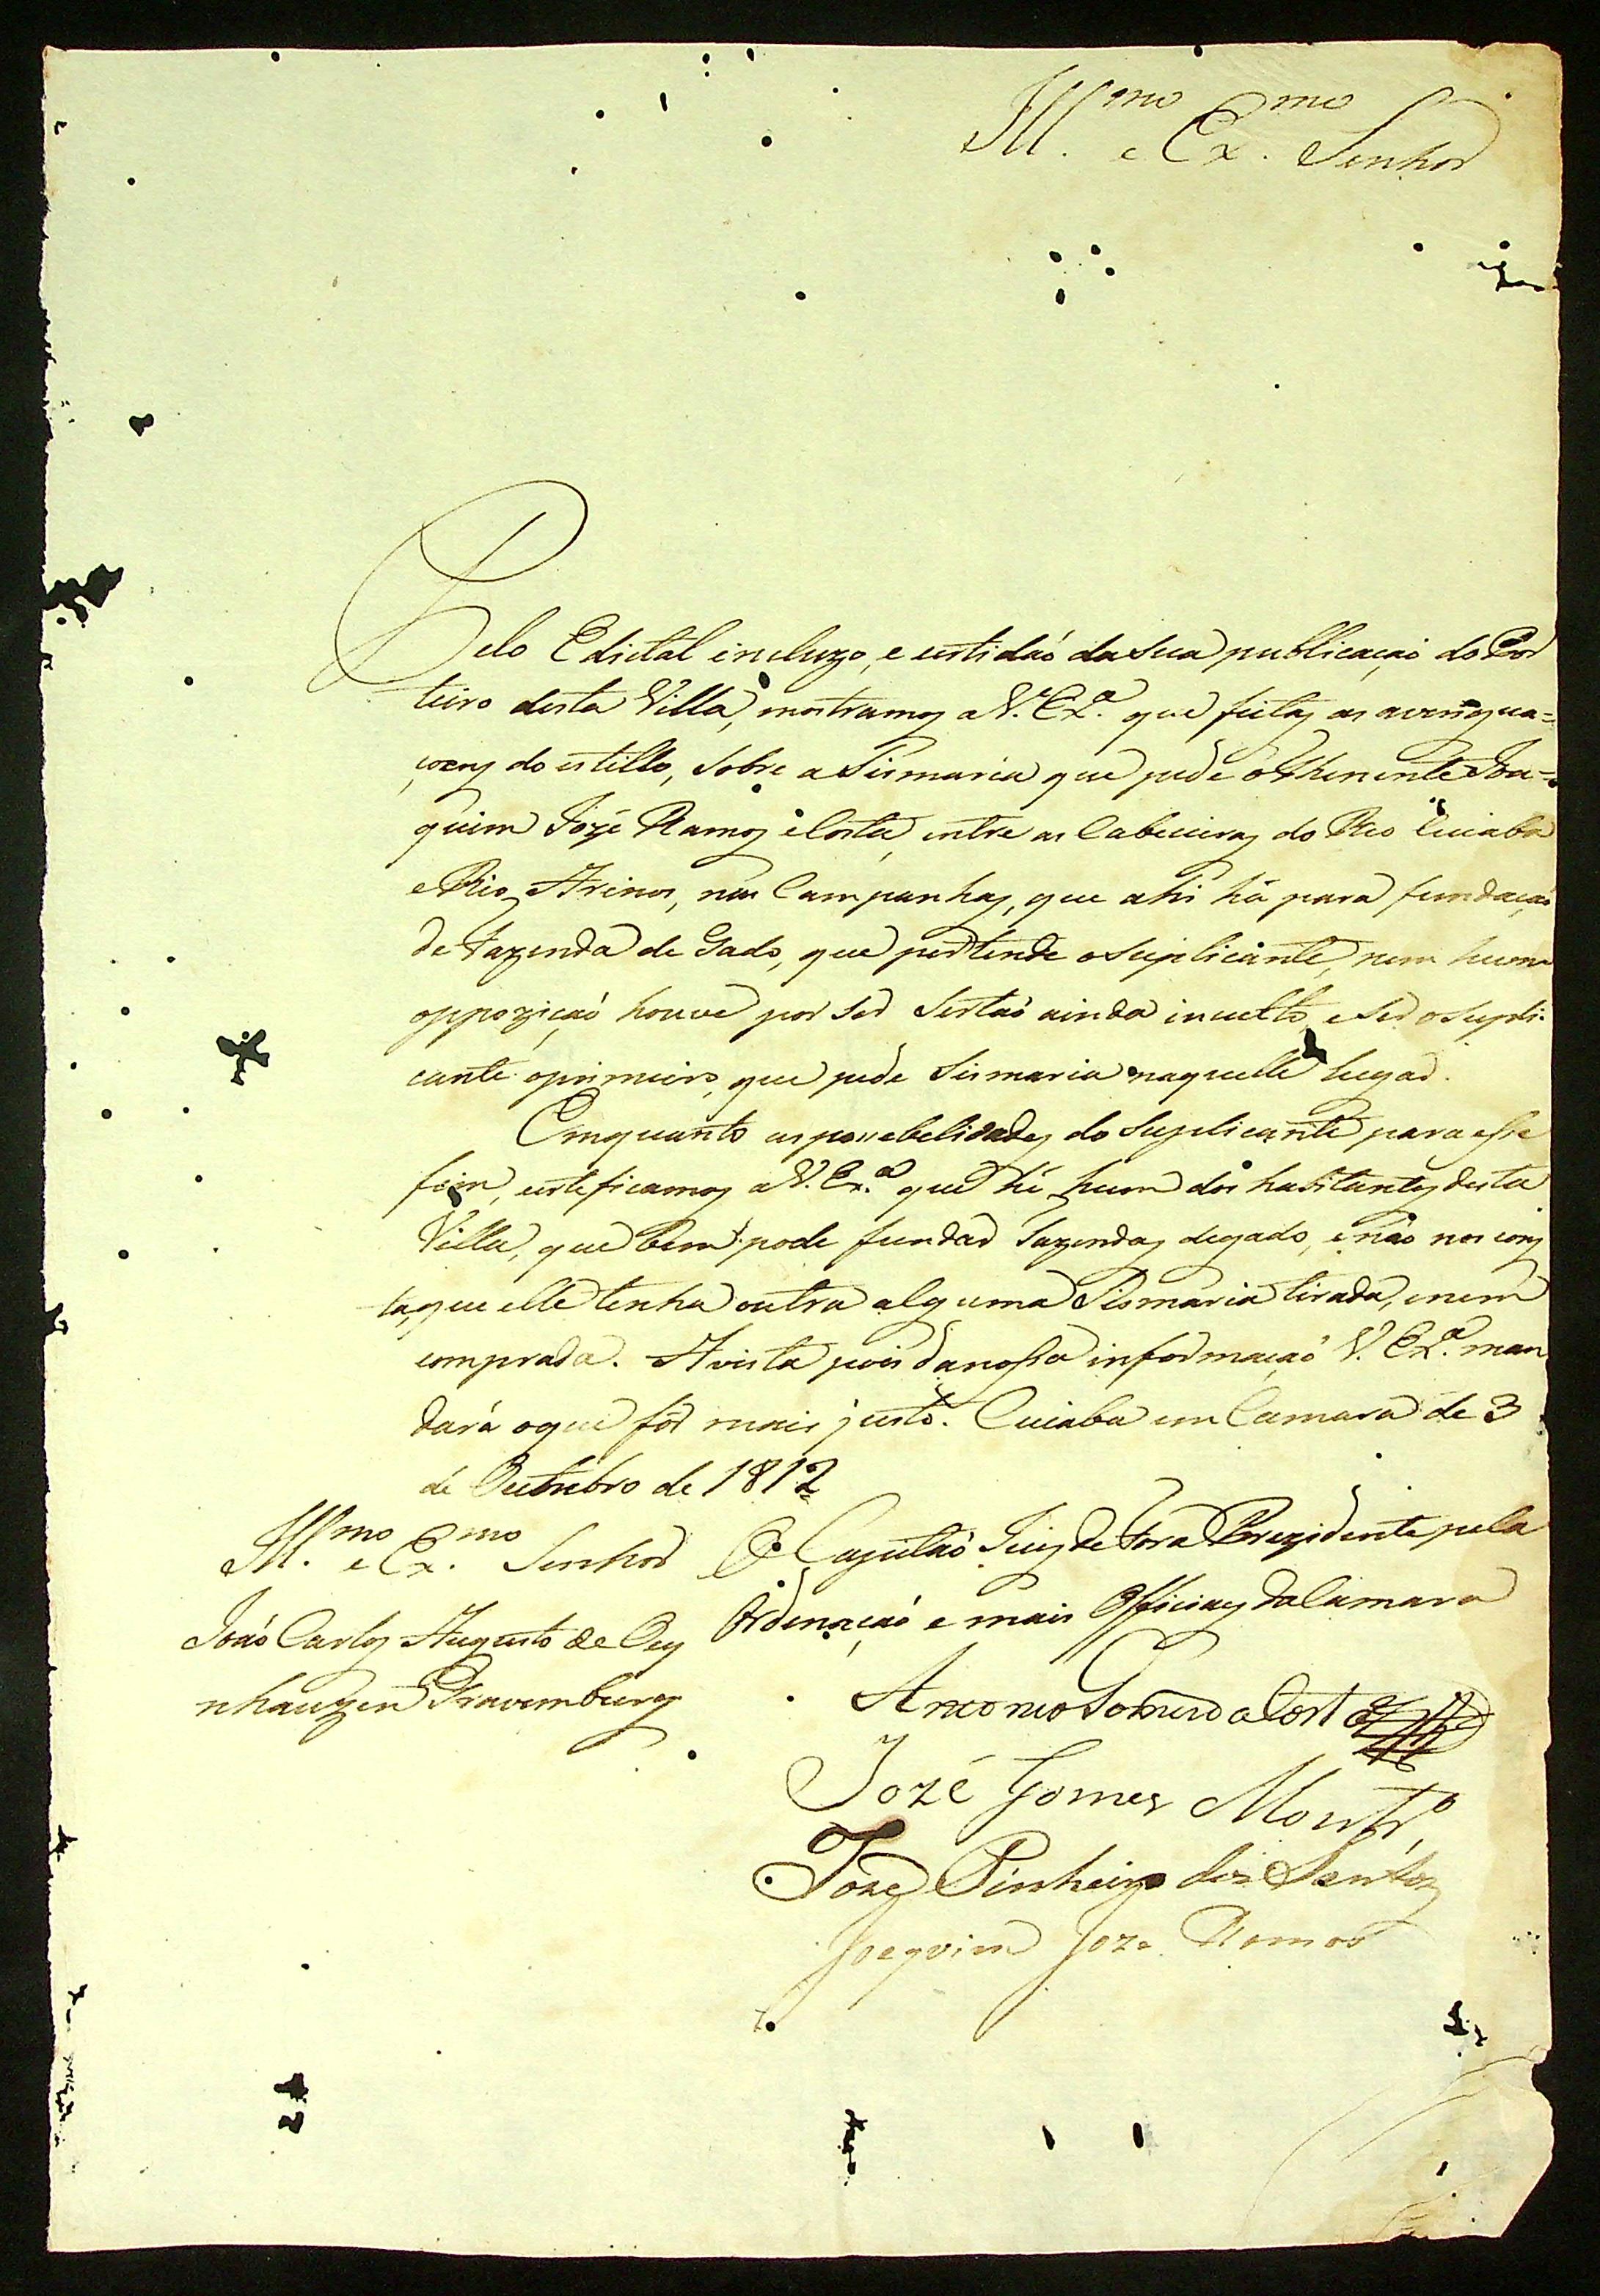 Ill.mo e Ex.mo Senhor
Pelo Edictal incluzo, e certidaó da sua publicaçaó do Por
teiro desta Villa, mostramos a V. Ex.a que feitas as averigua=
çoens do estillo, sobre a Sismaria que pede o Thenente Joa=
quim Jozé Ramos e Costa, entre as Cabeceiras do Rio Cuiabá
e Rio Arinos, nas Campanhas, que ahi há para fundaçaó
de Fazenda de Gado, que pertende o Suplicante, nem huma
oppoziçaó houve por ser Sertaó ainda inculto, e ser o Supli
cante o primeiro, que pede Sismaria naquelle lugar.
Emquanto as possebelidades do Suplicante para esse
fim, certeficamos a V. Ex.a que hé hum dos habitantes desta
Villa, que bem pode fundar fazendas de gado, e não nos cons
ta, que elle tenha outra alguma Sismaria tirada, e nem
comprada. A vista pois da nossa informaçaó V. Ex.a man
dará o que for mais justo. Cuiaba em Camara de 3
de Outubro de 1812
Ill.mo e Ex.mo Senhor
João Carlos Augusto de Oey
nhauzen Gravemburg
O Capitaó Juiz de Fora Prezidente pela
Ordenaçaó e mais Officiaes da Camara
Antonio da Costa
Jozé Gomes Montr.o
Joze Pinheiro dos Santos
Joaquim Joze Ramos